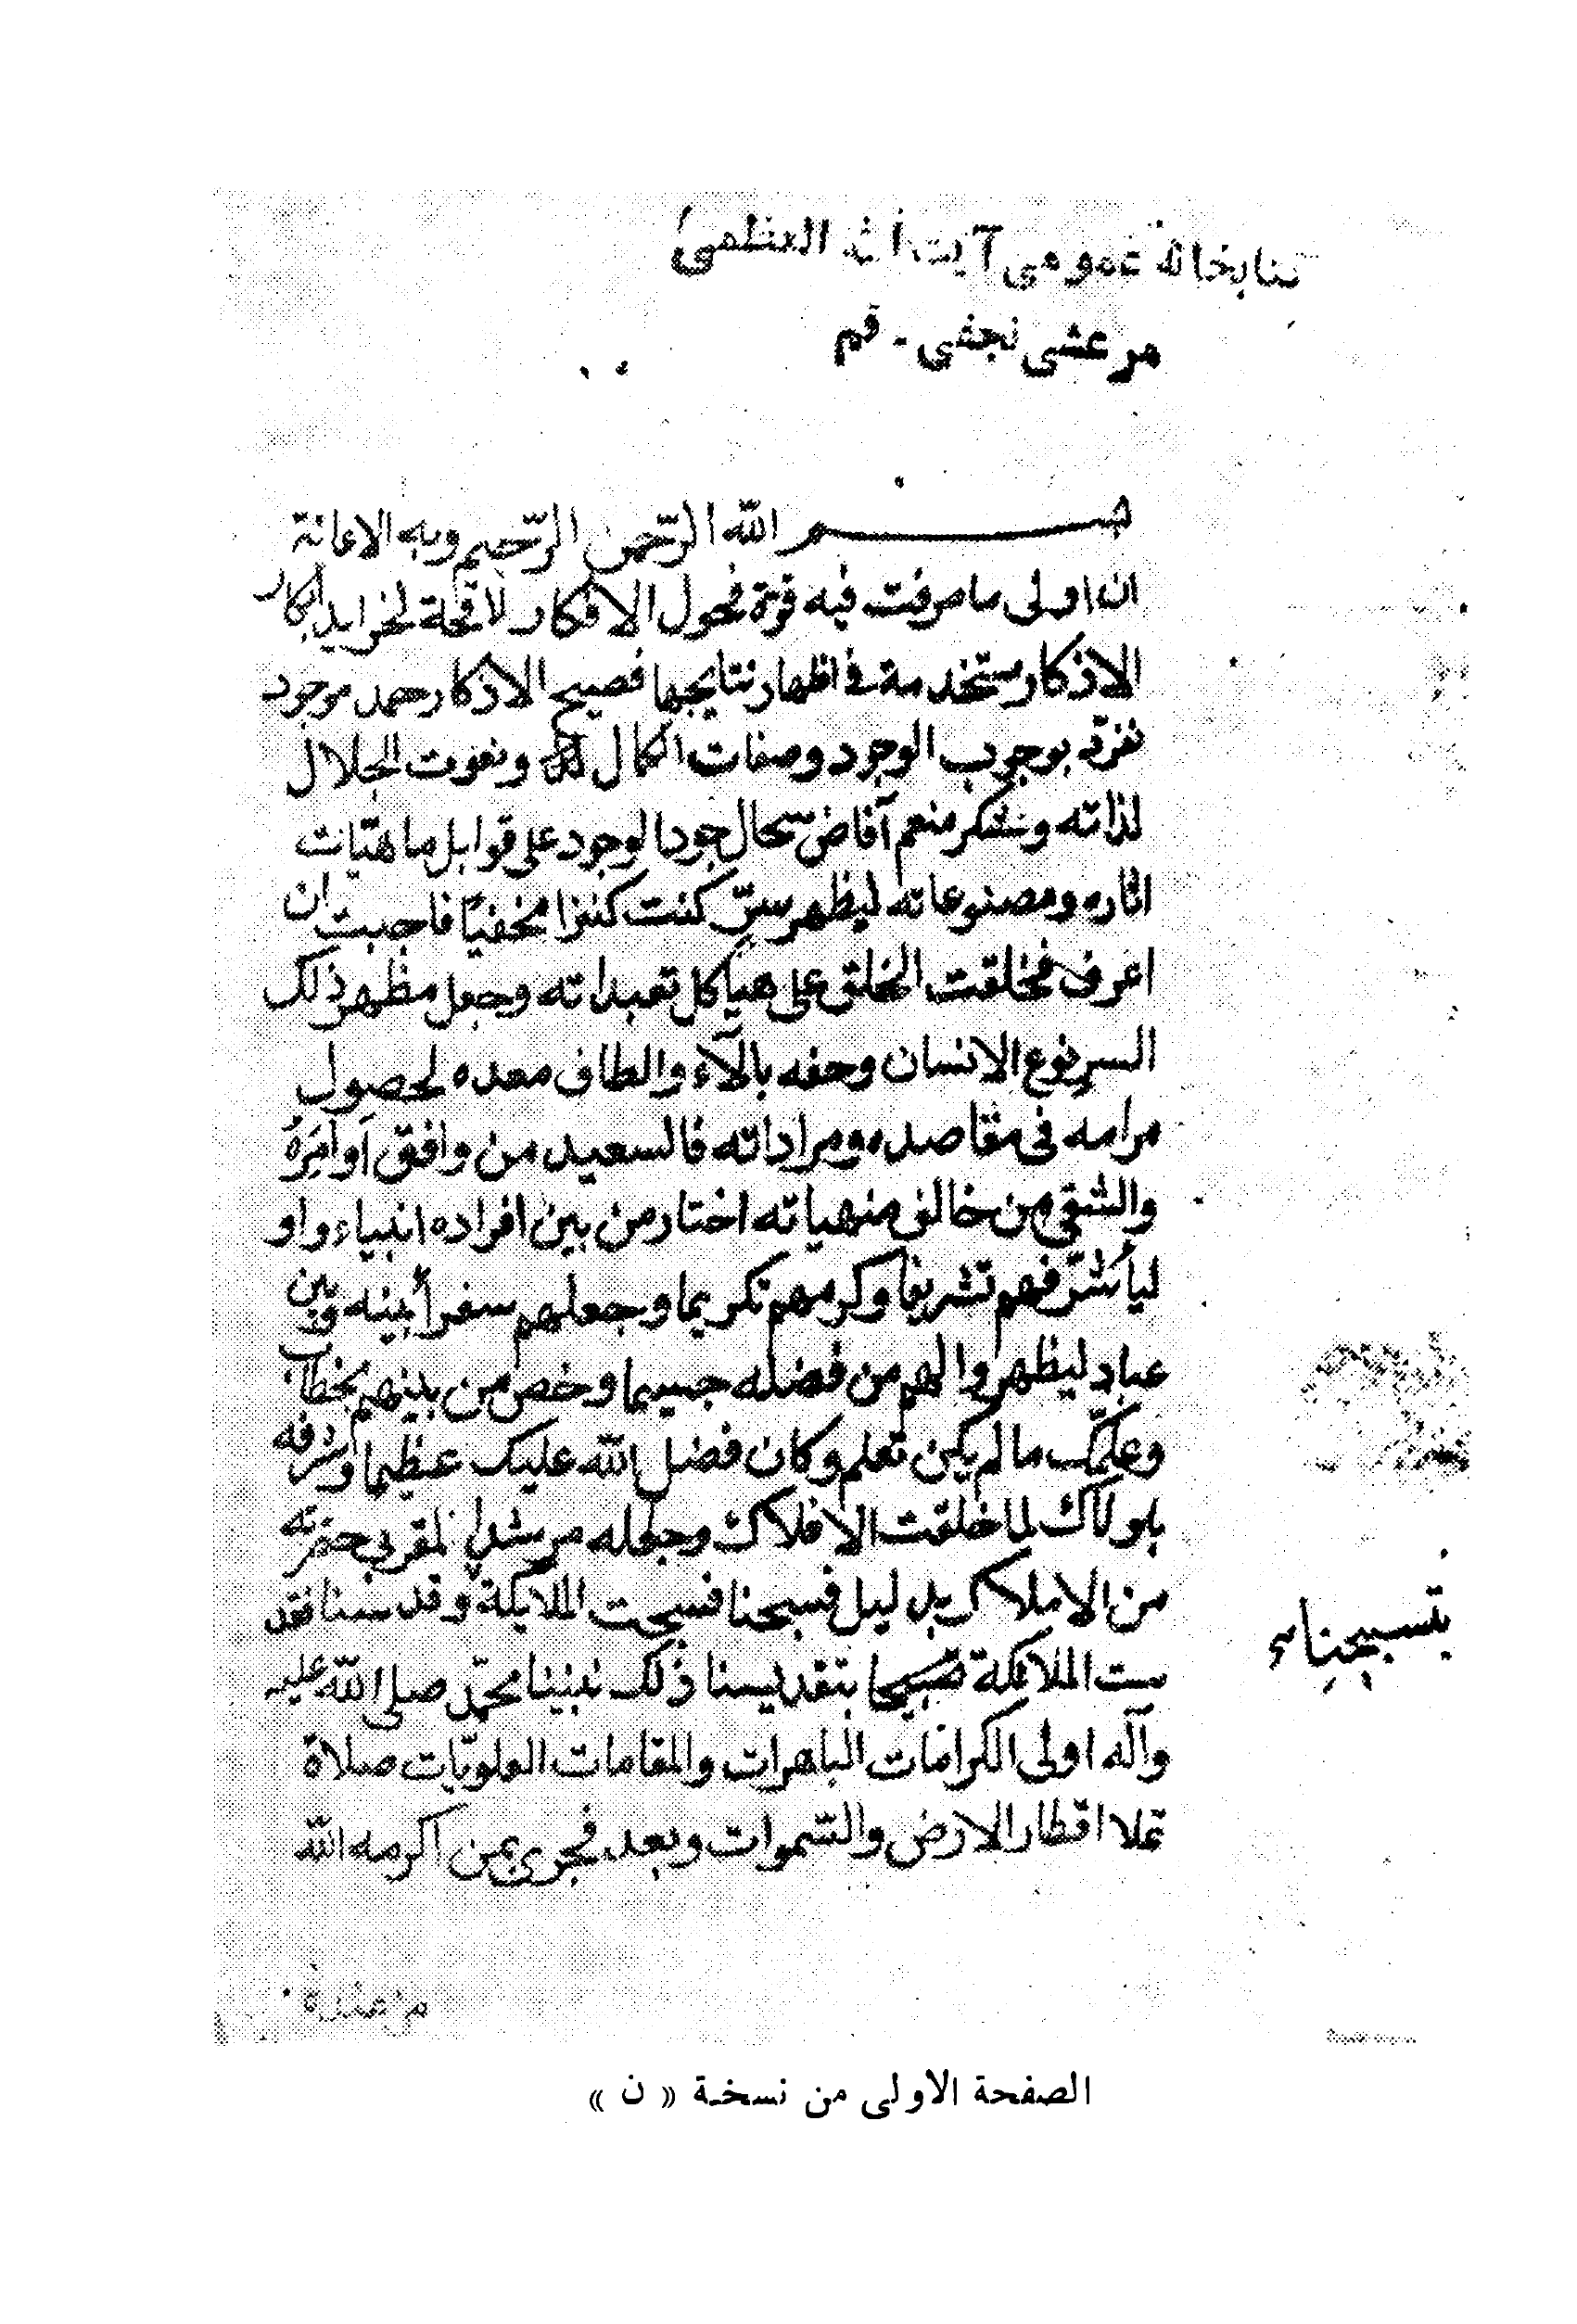 كتابخانه عمومى آيت الله العظمى
مرعشى نجفى - قم
بسم الله الرّحمن الرّحيم وبه الاعانة
ان اولى ما صرفت فيه قوّة فحول الافكار لاقحة لخرايد ابكار
الاذكار مستخدمة في اظهار نتايجها فصيح الاذكار حمد موجود
تفرّد بوجوب الوجود وصفات الكمال ونعوت الجلال
لذاته وشكر منعم آفاض سجال جود الوجود على قوابل ماهيّات
اثاره ومصنوعاته ليظهر سرّ كنت كنزا مخفيّا فاحببت ان
اعرف فخلقت الخلق على هياكل تعبداته وجعل مظهر ذلك
السر نوع الانسان وحفه بالآء والطاف معده لحصول
مرامه فى مقاصده ومراداته فالسعيد من وافق آوامِرَهُ
والشقي من خالف منهياته اختار من بين افراده انبياء واو
ليأ شرّفهم تشريفا وكرمهم تكريما وجعلهم سفرأ بينه وبين
عباده ليظهر والهم من فضله جسيما وخص من بينهم بخطاب
وعلّمك ما لم يكن تعلم وكان فضل الله عليك عظيما وشرفه
بلولاك لما خلقت الافلاك وجعله مرشدا لمقربى حضرته
من الاملاك بدليل فسبحنا فسبحت الملايكة وقدسنا فقد
ست الملائكة بتقديسنا ذلك نبينا محمّد صلى الله عليه
وآله اولى الكرامات الباهرات والمقامات العلويّات صلاة
تملا اقطار الارض والسّموات وبعد فجرى بمن اكرمه الله
بتسبيحنا
من عنده
الصفحة الاولى من نسخة « ن »